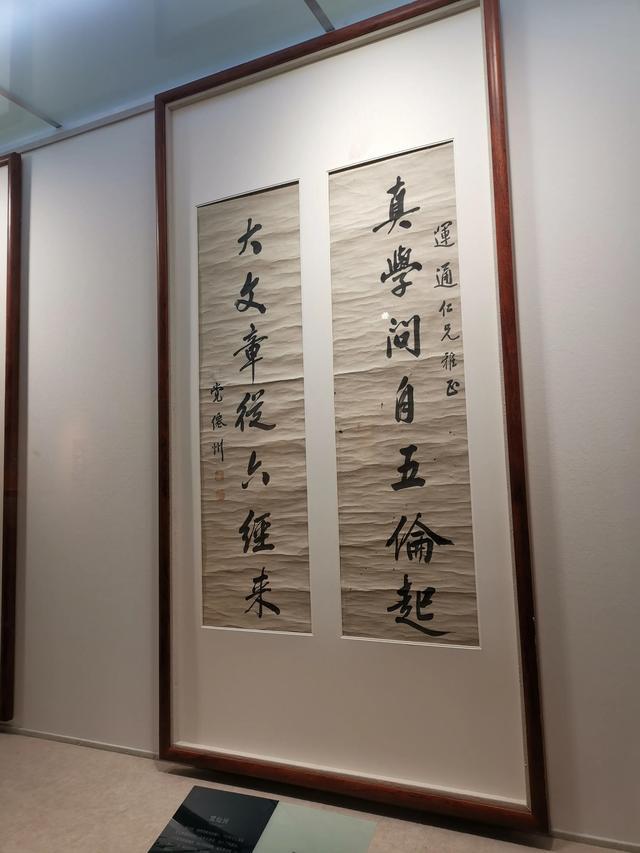 運通仁兄雅正
真學問自五倫起
大文章從六經来
党僊州